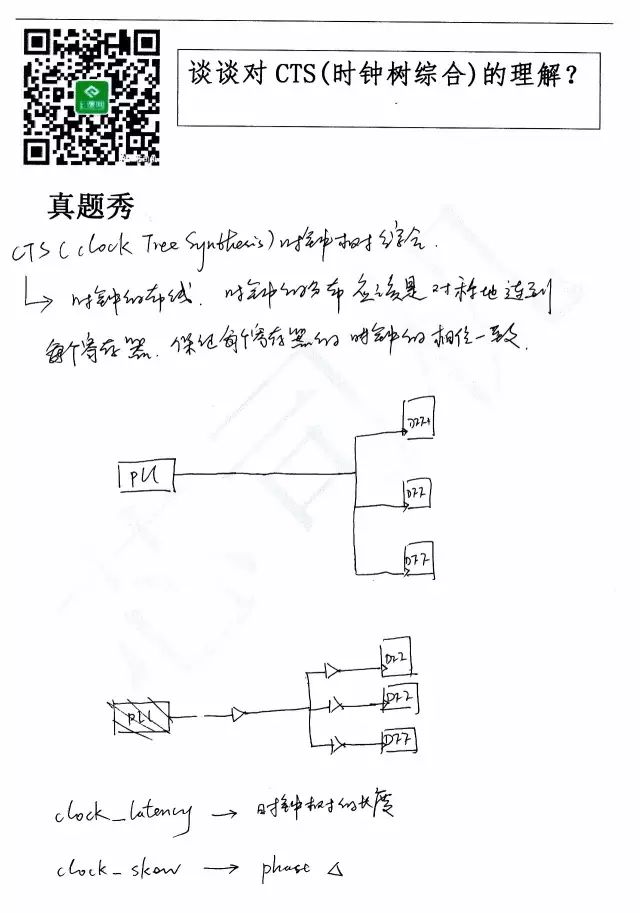 谈谈对 CTS(时钟树综合)的理解？
真题秀
CTS (clock Tree Synthesis) 时钟树综合.
时钟的布线. 时钟的分布应该是对称地连到
每个寄存器. 保证每个寄存器的时钟的相位一致.
PLL
DFF
DFF
DFF
PLL
DFF
DFF
DFF
clock_latency → 时钟树的长度
clock_skew → phase Δ